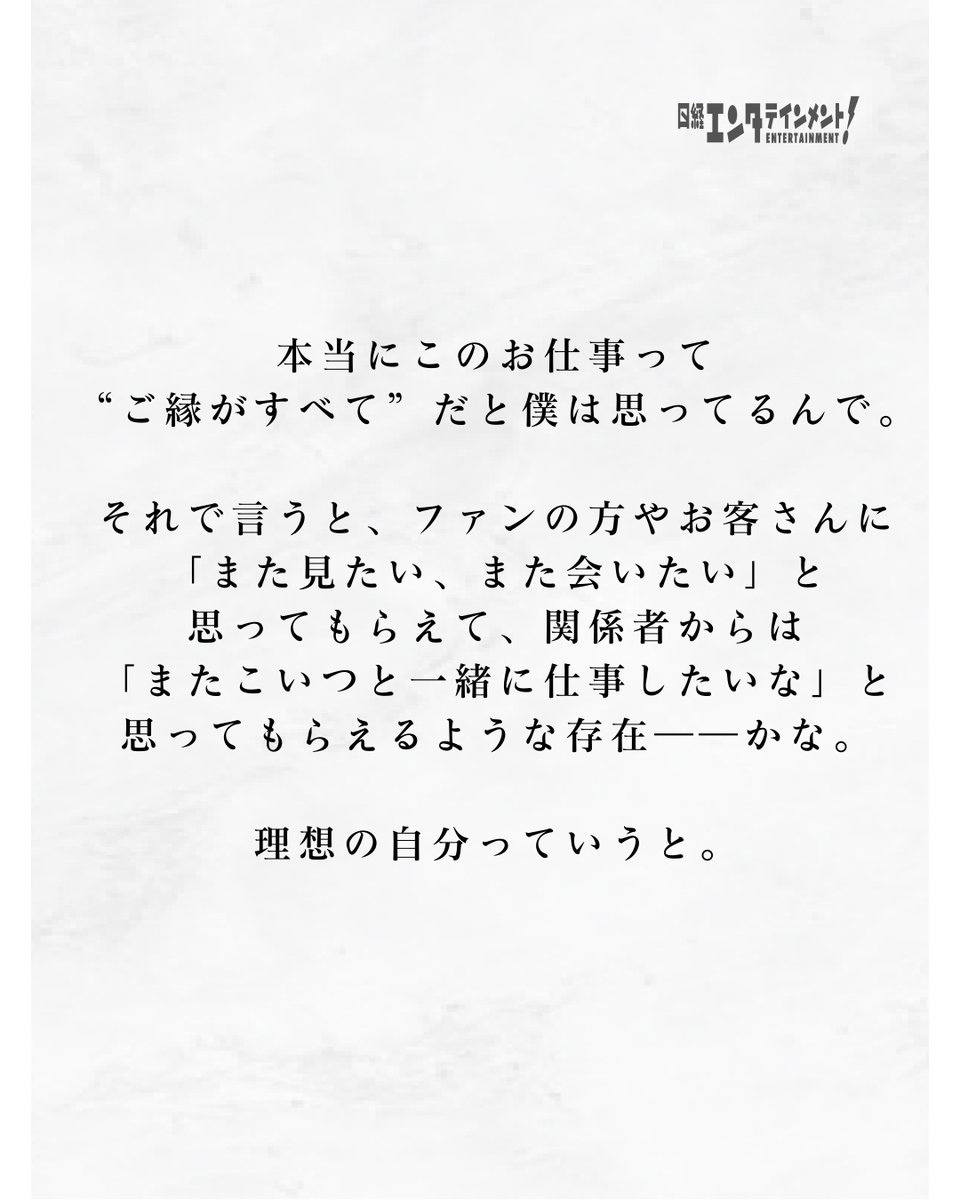 日経エンタテインメント!
ENTERTAINMENT!
本当にこのお仕事って
“ご縁がすべて”だと僕は思ってるんで。
それで言うと、ファンの方やお客さんに
「また見たい、また会いたい」と
思ってもらえて、関係者からは
「またこいつと一緒に仕事したいな」と
思ってもらえるような存在——かな。
理想の自分っていうと。